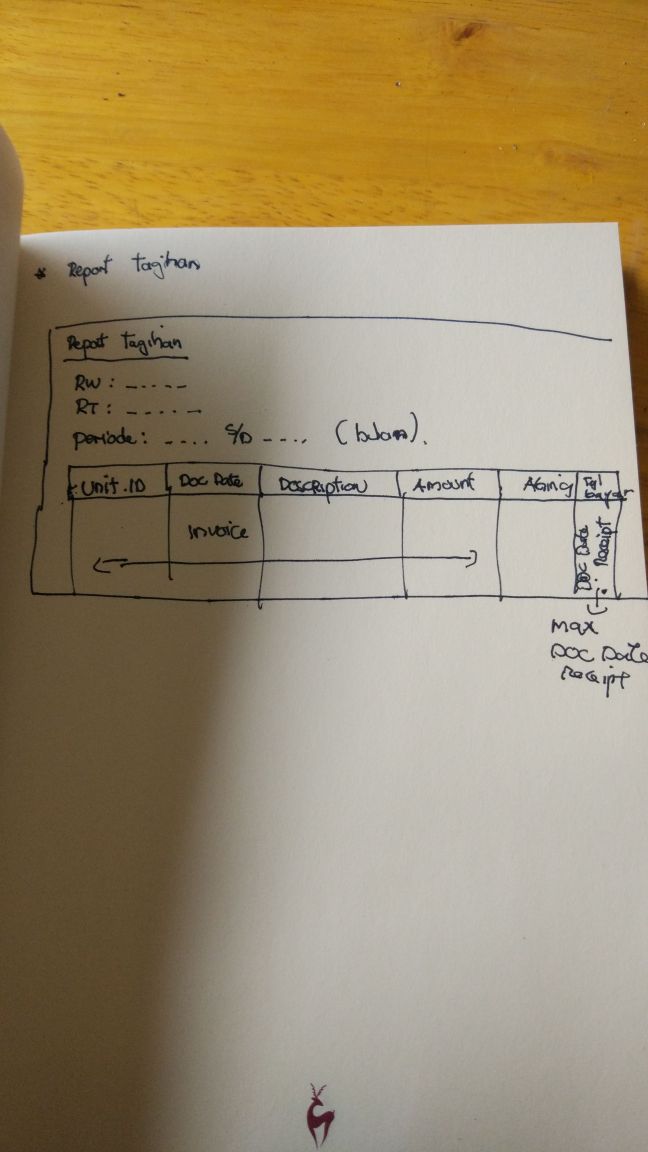 * Report tagihan
Report tagihan
RW : -----
RT : -----
Periode : .... S/D .... (bulan).
Unit.ID Doc Date Description Amount Aging Tgl bayar
Invoice
Doc Date Receipt
Max
DOC Date
Receipt